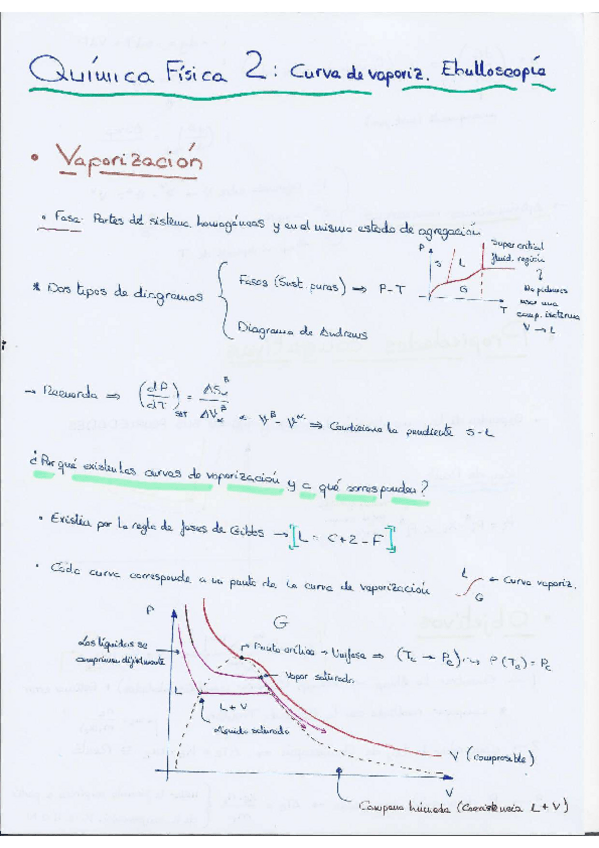 Química Física 2: Curva de vaporiz. Ebulloscopía
• Vaporización
• Fase: Partes del sistema homogéneas y en el mismo estado de agregación
* Dos tipos de diagramas
Fases (Sust. puras) ⇒ P-T
Diagrama de Andrews
P
S
L
G
T
Supercritical
fluid. región
No podemos
usar una
comp. isoterma
V → L
→ Recuerda ⇒ (dP/dT)sat = ΔSαβ / ΔVαβ ∝ Vβ - Vα ⇒ Condiciona la pendiente S-L
¿Por qué existen las curvas de vaporización y a qué corresponden?
• Existen por la regla de fases de Gibbs → [L = C+2-F]
• Cada curva corresponde a un punto de la curva de vaporización
L
G
← Curva vaporiz.
P
G
Los líquidos se
comprimen difícilmente
Punto crítico → Unifase ⇒ (Tc → Pc) P(Tc) = Pc
Vapor saturado
L
L+V
Líquido saturado
V (compresible)
V
Campana húmeda (Coexistencia L+V)